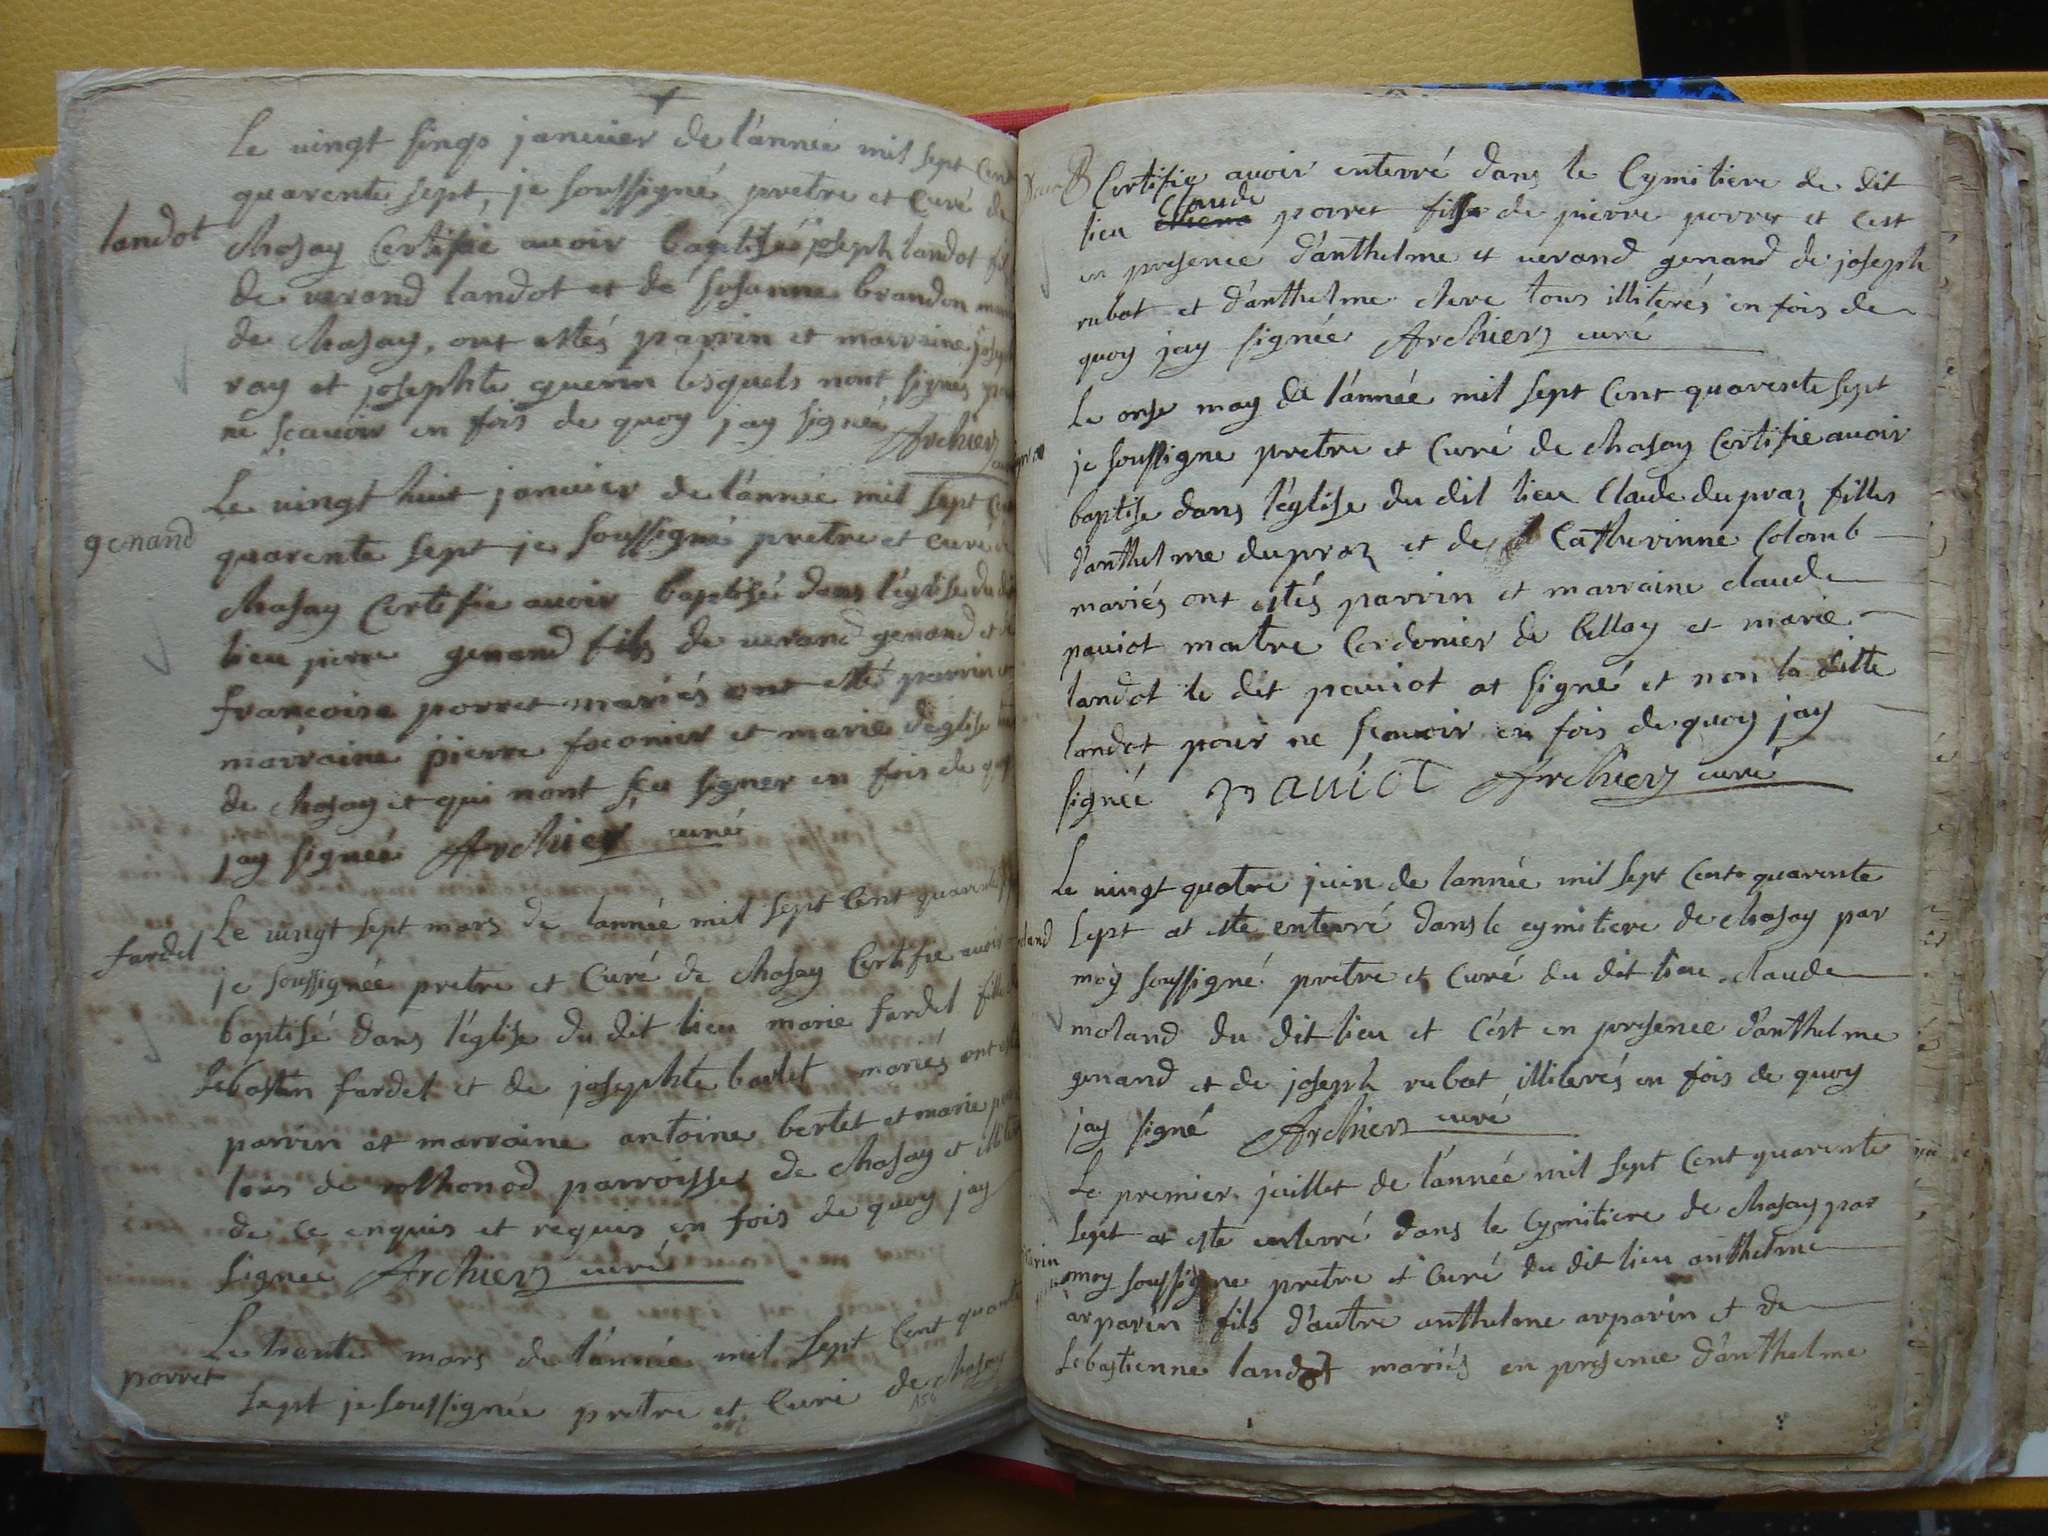 Le vingt sinqs janvier de l'année mil sept Cent
quarente sept, je soussigné pretre et Curé de
landot
chasay Certifie avoir baptisé joseph landot fil
de verand landot et de susanne brandon
de chasay, ont estés parrin et marraine
ray et josephte guerin lesquels nont signés
ne sçavoir en fois de quoy jay signée Archiery
Le vingt huit janvier de l'année mil sept
genand
quarente sept je soussigné pretre et curé
chasay Certifie avoir baptisé dans l'église du
lieu pierre genand fils de verand genand et
françoise porret mariés ont esté parrin et
marraine pierre foconier et marie déglise
de chasay et qui nont sçu signer en fois de
jay signée Archiery curé
Le vingt sept mars de lannée mil sept Cent quarente
fardel
je soussignée pretre et Curé de chasay Certifie avoir
baptisé dans l'église du dit lieu marie fardel fille
sebastin fardel et de josephte barlet mariés ont
parrin et marraine antoine berlet et marie
tous de rothonod parroisse de chasay et
de ce enquis et requis en fois de quoy jay
signée Archiery curé
Le trente mars de l'année mil sept Cent
porret
sept je soussignée pretre et Curé de chasay
156
Certifie avoir enterré dans le Cymitiere de dit
Claude
lieu porret fils de pierre porret et cest
en presence d'anthelme et verand genand de joseph
rubat et d'anthelme clere tous illiterés en fois de
quoy jay signée Archiery curé
Le onse may de l'année mil sept Cent quarente sept
je soussigne pretre et Curé de chasay Certifie avoir
baptise dans l'église du dit lieu Claude dupraz filles
d'anthelme dupraz et de Catherinne Colomb
mariés ont estés parrin et marraine claude
paviot maitre Cordonier de bellay et marie
landot le dit paviot at signé et non la ditte
landot pour ne sçavoir en fois de quoy jay
signée paviot Archiery curé
Le vingt quatre juin de lannée mil sept Cent quarente
sept at este enterré dans le cymitiere de chasay par
moy soussigné pretre et Curé du dit lieu claude
moland du dit lieu et c'est en presence d'anthelme
genand et de joseph rubat illiterés en fois de quoy
jay signé Archiery curé
Le premier juillet de l'année mil sept Cent quarente
sept at este enterré dans le Cymitiere de chasay par
moy soussigne pretre et Curé du dit lieu anthelme
arparin fils d'autre anthelme arparin et de
sebastienne landot mariés en presence d'anthelme